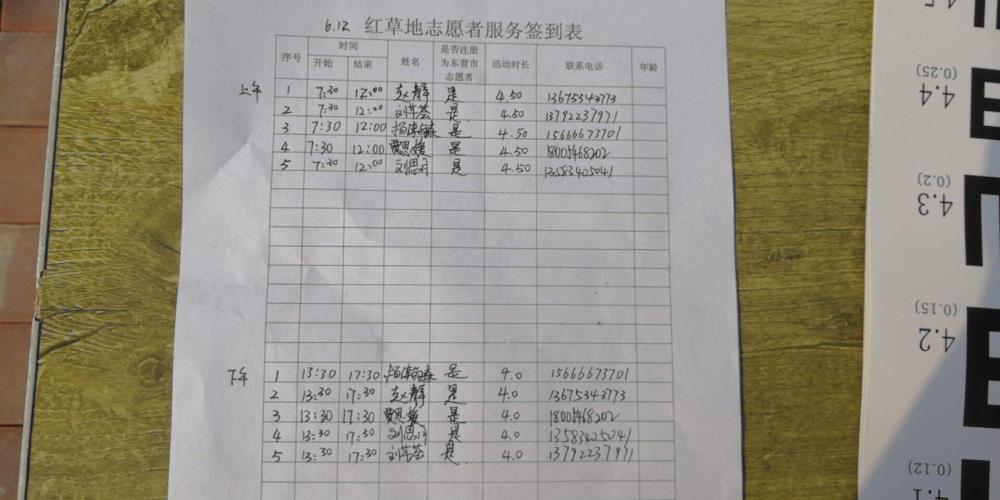 6.12 红草地志愿者服务签到表
序号 时间 开始 结束 姓名 是否注册为东营市志愿者 活动时长 联系电话 年龄
上午
1 7:30 12:00 赵静 是 4.50 13675343773
2 7:30 12:00 刘芊荟 是 4.50 13792237971
3 7:30 12:00 是 4.50 15666673701
4 7:30 12:00 贾思媛 是 4.50 18005468202
5 7:30 12:00 刘思彤 是 4.50 13583405041
下午
1 13:30 17:30 是 4.0 15666673701
2 13:30 17:30 赵静 是 4.0 13675343773
3 13:30 17:30 贾思媛 是 4.0 18005468202
4 13:30 17:30 刘思彤 是 4.0 13583405041
5 13:30 17:30 刘芊荟 是 4.0 13792237971
4.5
(0.25)
4.4
(0.2)
4.3
(0.15)
4.2
(0.12)
4.1